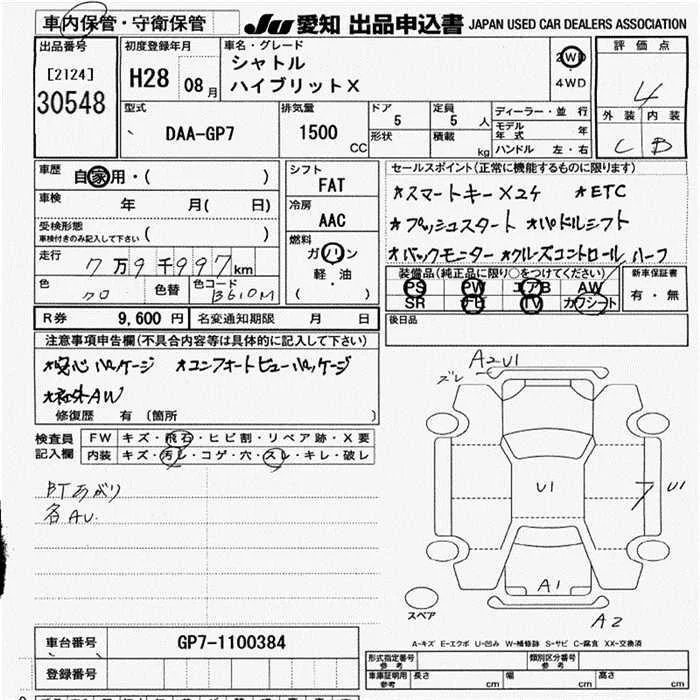 車内保管・守衛保管
JU 愛知 出品申込書 JAPAN USED CAR DEALERS ASSOCIATION
出品番号
[2124]
30548
初度登録年月
H28 08月
車名・グレード
シャトル
ハイブリットX
2WD
4WD
評価点
4
外装 内装
C B
型式
DAA-GP7
排気量
1500
CC
ドア
5
形状
定員
5 人
積載
kg
ディーラー・並行
モデル年式 年
ハンドル 左・右
車歴
自家用・( )
車検 年 月( 日)
受検形態
車検付きのみ記入して下さい ( )
走行
7万9千997km
色 クロ 色替 色コード B610M
シフト
FAT
冷房
AAC
燃料
ガソリン
軽・油
( )
セールスポイント(正常に機能するものに限ります)
*スマートキー×2ケ *ETC
*プッシュスタート *パドルシフト
*バックモニター *クルーズコントロール ハーフ
装備品(純正品に限り○をつけてください)
PS PW エアB AW
SR ナビ TV カワシート
新車保証書
有・無
R券 9,600円 名変通知期限 月 日
後日品
注意事項申告欄(不具合内容等は具体的に記入して下さい)
*安心パッケージ *コンフォートビューパッケージ
*社外AW
修復歴 有 (箇所 )
検査員
記入欄
FW キズ・飛石・ヒビ割・リペア跡・X要
内装 キズ・汚レ・コゲ・穴・スレ・キレ・破レ
BTあがり
各AU.
ズレ A2U1
U1
U1
A1
A2
スペア
A-キズ E-エクボ U-凹み W-補修跡 S-サビ C-腐食 XX-交換済
車台番号 GP7-1100384
登録番号
形式指定番号
参考
類別区分番号
参考
車庫証明用
参考
長さ cm 幅 cm 高さ cm